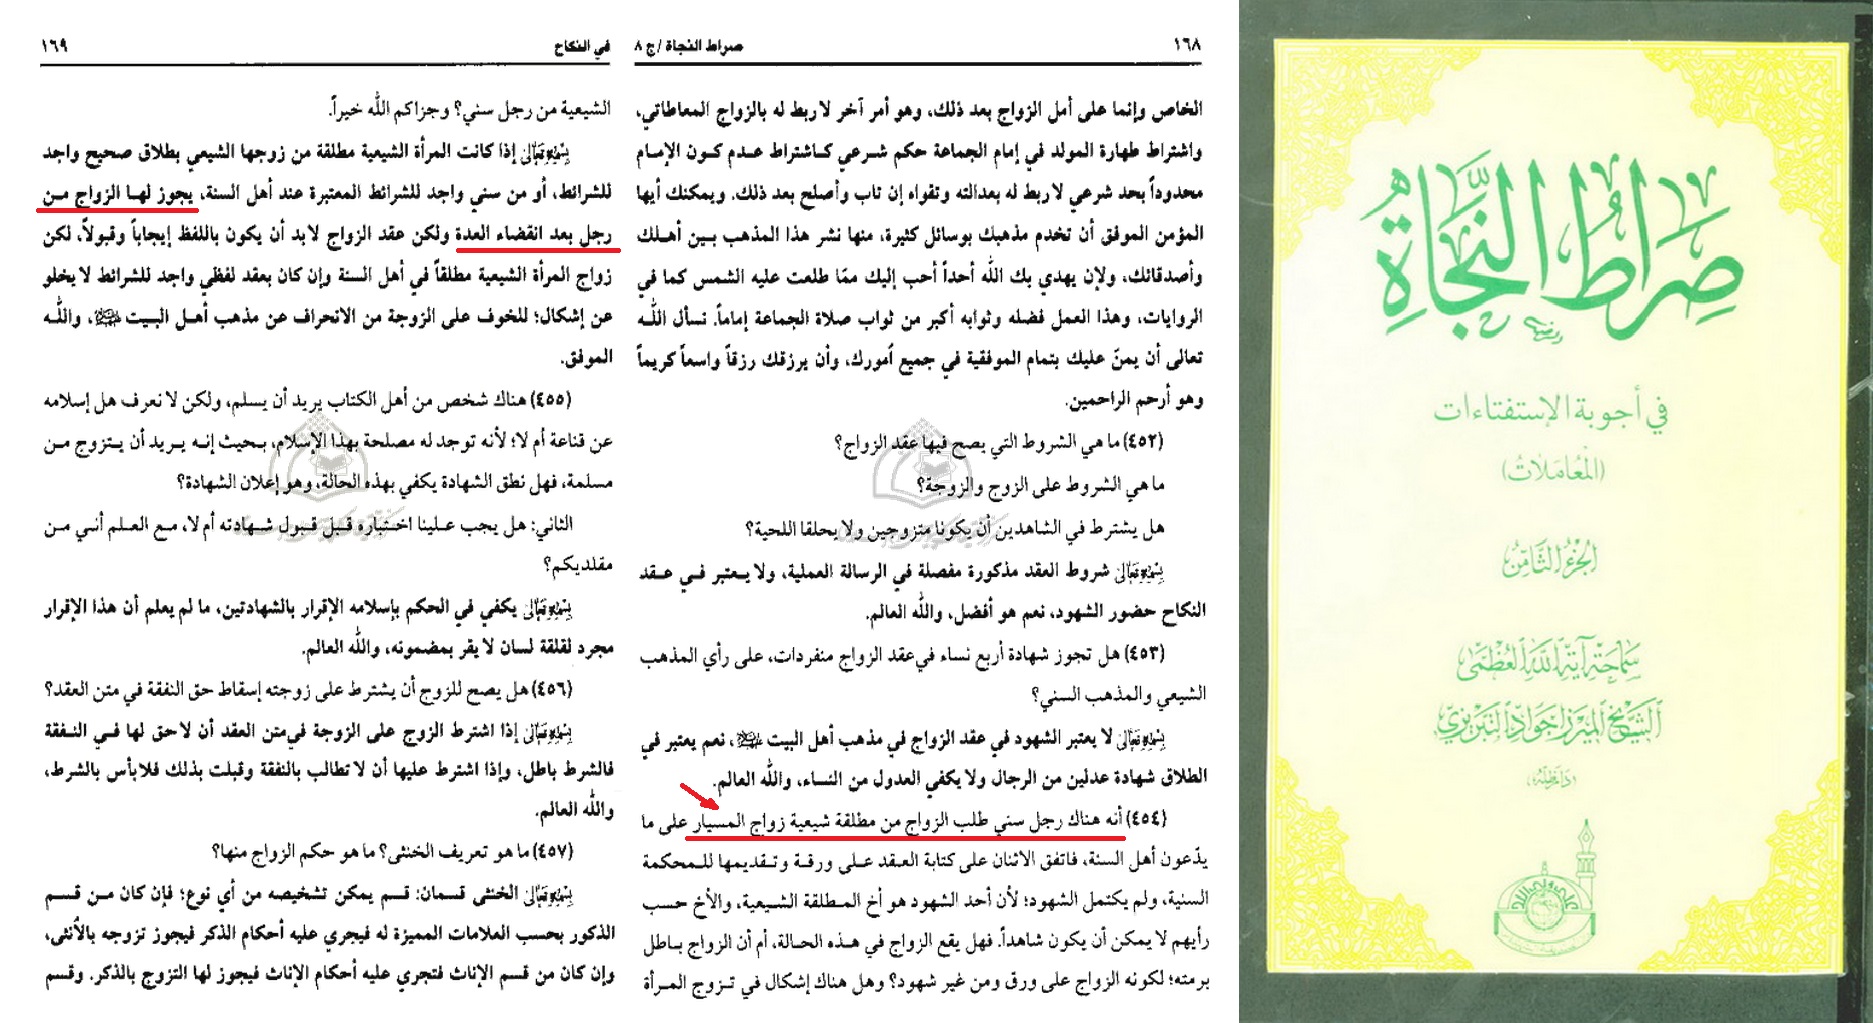 ١٦٨
صراط النجاة / ج ٨
الخاص وإنما على أمل الزواج بعد ذلك، وهو أمر آخر لا ربط له بالزواج المعاطاتي،
واشتراط طهارة المولد في إمام الجماعة حكم شرعي كاشتراط عدم كون الإمام
محدوداً بحد شرعي لا ربط له بعدالته وتقواه إن تاب وأصلح بعد ذلك. ويمكنك أيها
المؤمن الموفق أن تخدم مذهبك بوسائل كثيرة، منها نشر هذا المذهب بين أهلك
وأصدقائك، ولإن يهدي بك الله أحداً أحب إليك ممّا طلعت عليه الشمس كما في
الروايات، وهذا العمل فضله وثوابه أكبر من ثواب صلاة الجماعة إماماً. نسأل الله
تعالى أن يمنّ عليك بتمام الموفقية في جميع أمورك، وأن يرزقك رزقاً واسعاً كريماً
وهو أرحم الراحمين.
(٤٥٢) ما هي الشروط التي يصح فيها عقد الزواج؟
ما هي الشروط على الزوج والزوجة؟
هل يشترط في الشاهدين أن يكونا متزوجين ولا يحلقا اللحية؟
بسمه تعالى شروط العقد مذكورة مفصلة في الرسالة العملية، ولا يعتبر في عقد
النكاح حضور الشهود، نعم هو أفضل، والله العالم.
(٤٥٣) هل تجوز شهادة أربع نساء في عقد الزواج منفردات، على رأي المذهب
الشيعي والمذهب السني؟
بسمه تعالى لا يعتبر الشهود في عقد الزواج في مذهب أهل البيت، نعم يعتبر في
الطلاق شهادة عدلين من الرجال ولا يكفي العدول من النساء، والله العالم.
(٤٥٤) أنه هناك رجل سني طلب الزواج من مطلقة شيعية زواج المسيار على ما
يدّعون أهل السنة، فاتفق الاثنان على كتابة العقد على ورقة وتقديمها للمحكمة
السنية، ولم يكتمل الشهود؛ لأن أحد الشهود هو أخ المطلقة الشيعية، والأخ حسب
رأيهم لا يمكن أن يكون شاهداً. فهل يقع الزواج في هذه الحالة، أم أن الزواج باطل
برمته؛ لكونه الزواج على ورق ومن غير شهود؟ وهل هناك إشكال في تزوج المرأة
في النكاح
١٦٩
الشيعية من رجل سني؟ وجزاكم الله خيراً.
بسمه تعالى إذا كانت المرأة الشيعية مطلقة من زوجها الشيعي بطلاق صحيح واجد
للشرائط، أو من سني واجد للشرائط المعتبرة عند أهل السنة، يجوز لها الزواج من
رجل بعد انقضاء العدة ولكن عقد الزواج لابد أن يكون باللفظ إيجاباً وقبولاً، لكن
زواج المرأة الشيعية مطلقاً في أهل السنة وإن كان بعقد لفظي واجد للشرائط لا يخلو
عن إشكال؛ للخوف على الزوجة من الانحراف عن مذهب أهل البيت، والله
الموفق.
(٤٥٥) هناك شخص من أهل الكتاب يريد أن يسلم، ولكن لا نعرف هل إسلامه
عن قناعة أم لا؛ لأنه توجد له مصلحة بهذا الإسلام، بحيث إنه يريد أن يتزوج من
مسلمة، فهل نطق الشهادة يكفي بهذه الحالة، وهو إعلان الشهادة؟
الثاني: هل يجب علينا اختباره قبل قبول شهادته أم لا، مع العلم أنني من
مقلديكم؟
بسمه تعالى يكفي في الحكم بإسلامه الإقرار بالشهادتين، ما لم يعلم أن هذا الإقرار
مجرد لقلقة لسان لا يقر بمضمونه، والله العالم.
(٤٥٦) هل يصح للزوج أن يشترط على زوجته إسقاط حق النفقة في متن العقد؟
بسمه تعالى إذا اشترط الزوج على الزوجة في متن العقد أن لا حق لها في النفقة
فالشرط باطل، وإذا اشترط عليها أن لا تطالب بالنفقة وقبلت بذلك فلا بأس بالشرط،
والله العالم.
(٤٥٧) ما هو تعريف الخنثى؟ ما هو حكم الزواج منها؟
بسمه تعالى الخنثى قسمان: قسم يمكن تشخيصه من أي نوع؛ فإن كان من قسم
الذكور بحسب العلامات المميزة له فيجري عليه أحكام الذكر فيجوز تزوجه بالأنثى،
وإن كان من قسم الإناث فتجري عليه أحكام الإناث فيجوز لها التزوج بالذكر. وقسم
صِرَاطُ النَّجَاةِ
في أجوبة الإستفتاءات
(المعاملات)
الجزء الثامن
سماحة آية الله العظمى
الشيخ الميرزا جواد التبريزي
(دام ظله)